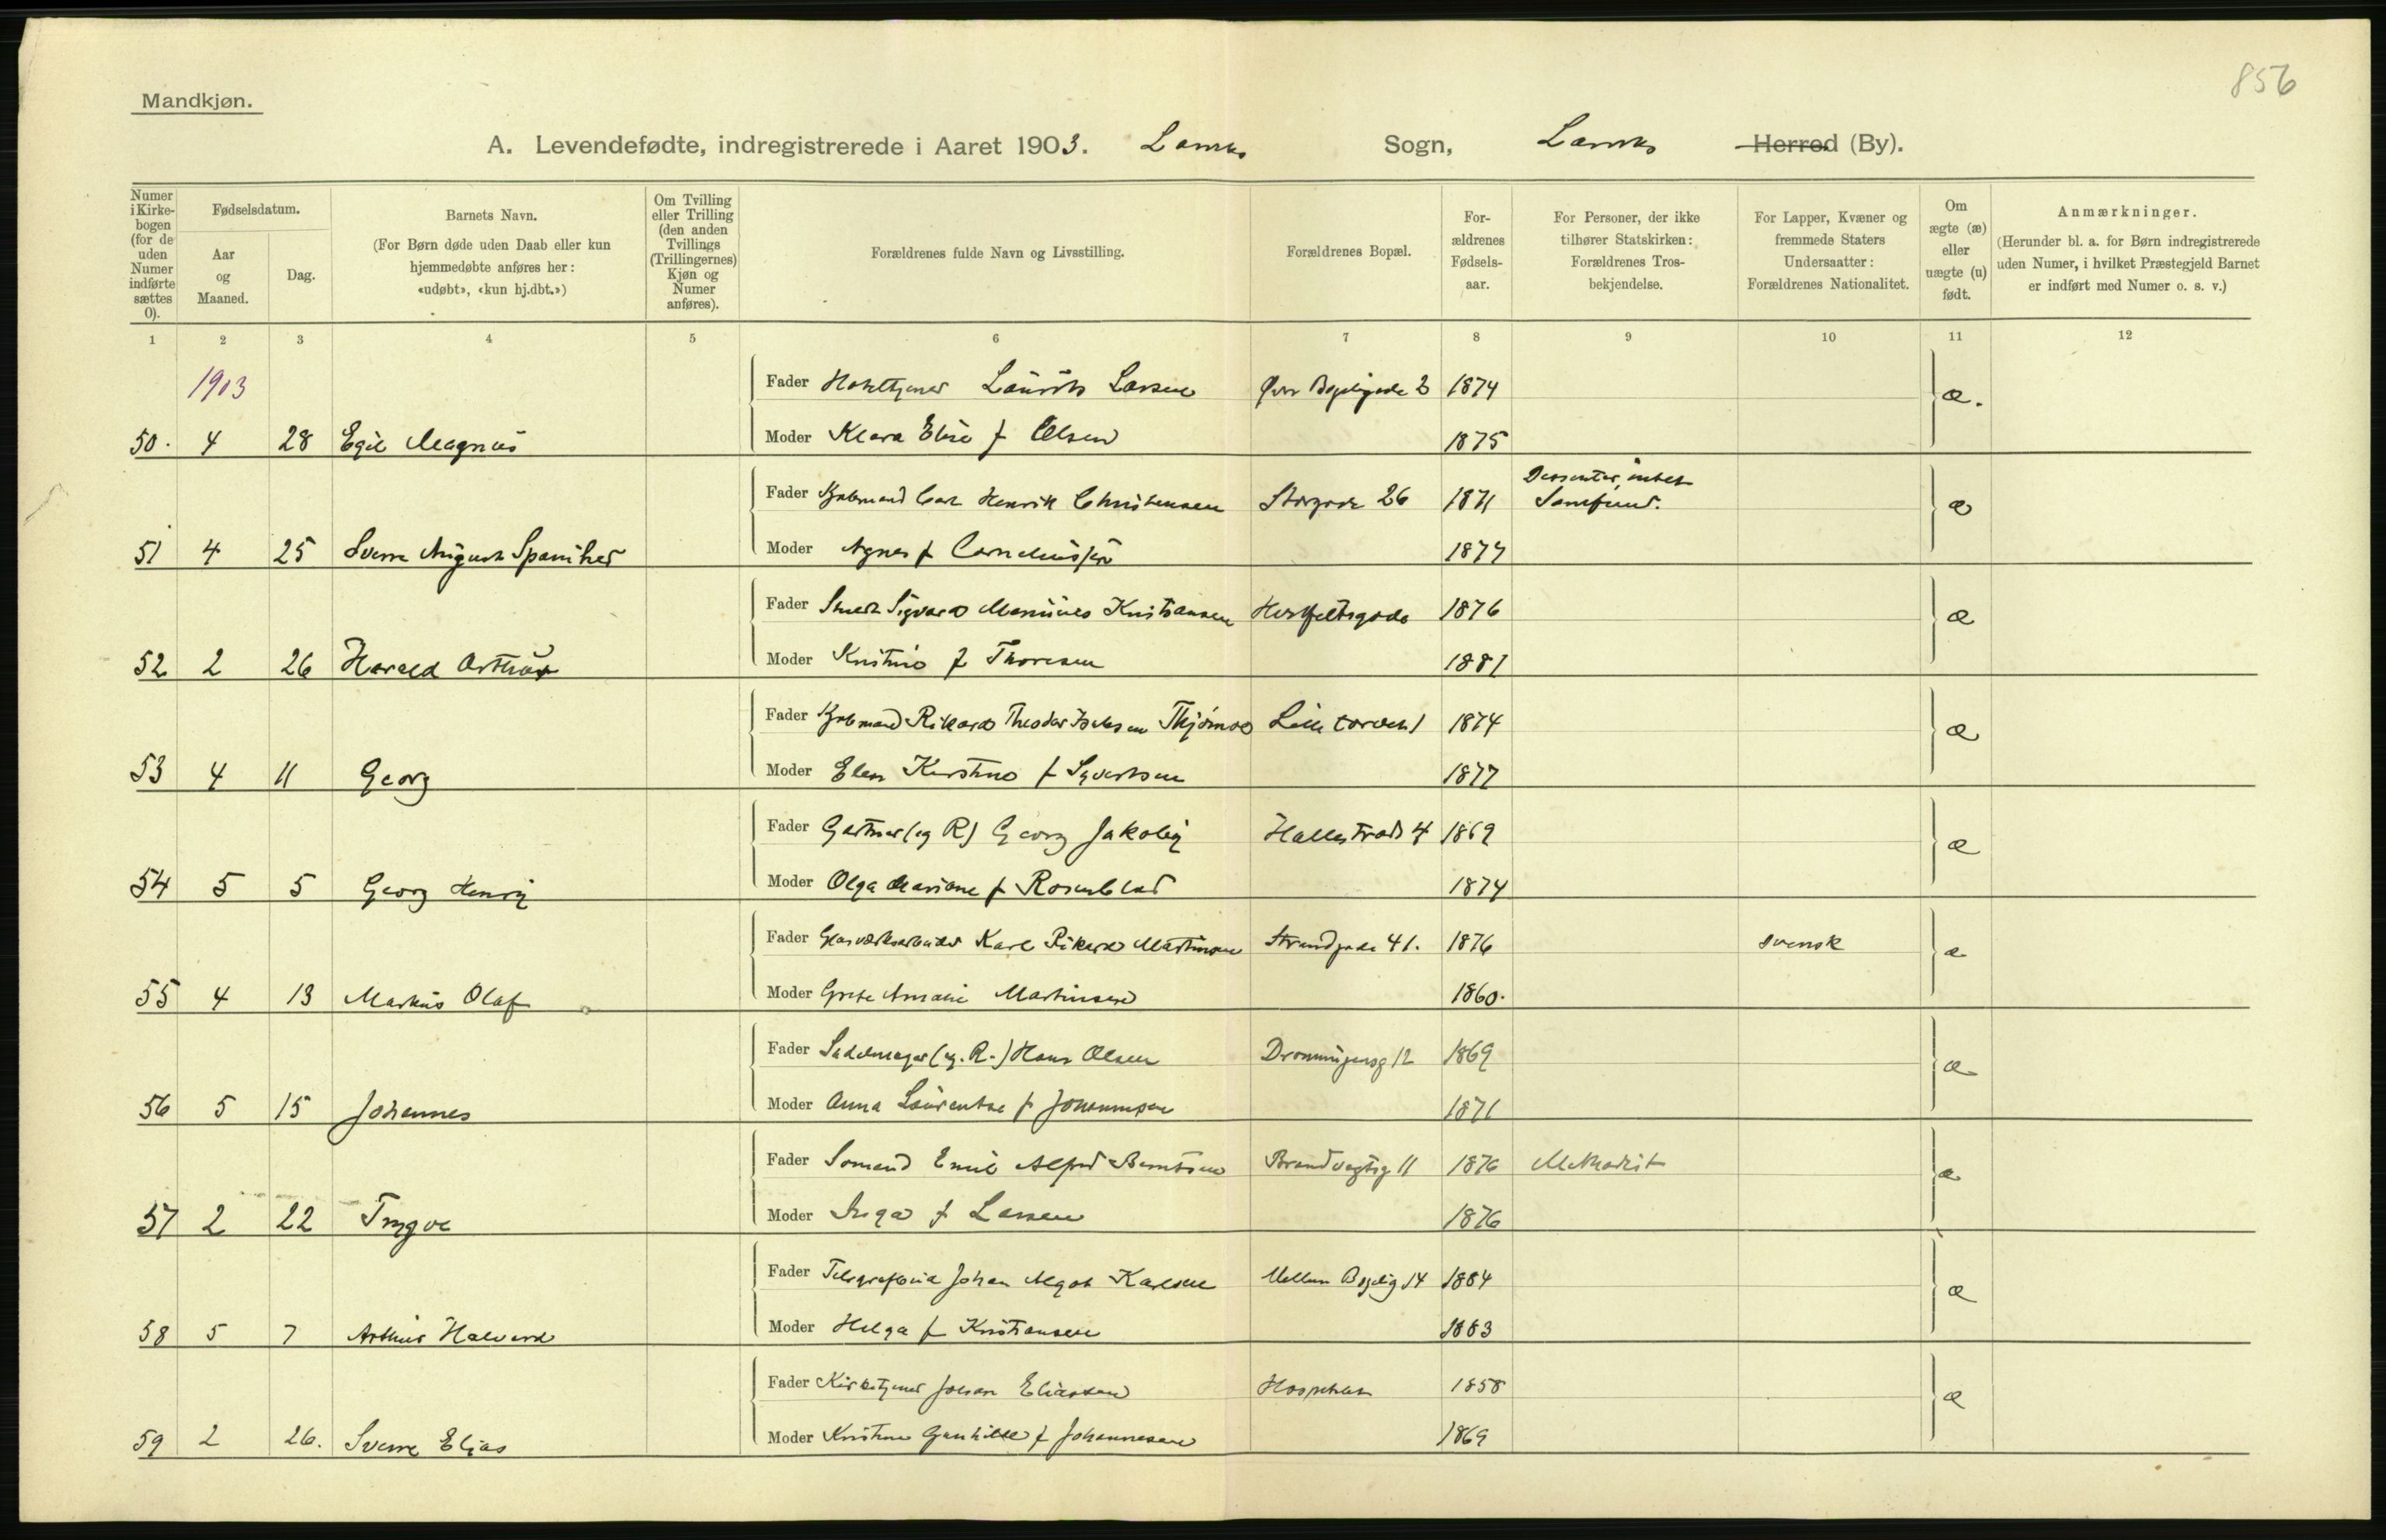 856
Mandkjøn.
A. Levendefødte, indregistrerede i Aaret 1903. Larviks Sogn, Larviks Herred (By).
Numer i Kirkebogen (for de uden Numer indførte sættes 0).
Fødselsdatum.
Aar og Maaned.
Dag.
Barnets Navn.
(For Børn døde uden Daab eller kun hjemmedøbte anføres her: «udøbt», «kun hj.dbt.»)
Om Tvilling eller Trilling (den anden Tvillings (Trillingernes) Kjøn og Numer anføres).
Forældrenes fulde Navn og Livsstilling.
Forældrenes Bopæl.
Forældrenes Fødselsaar.
For Personer, der ikke tilhører Statskirken: Forældrenes Trosbekjendelse.
For Lapper, Kvæner og fremmede Staters Undersaatter: Forældrenes Nationalitet.
Om ægte (æ) eller uægte (u) født.
Anmærkninger.
(Herunder bl. a. for Børn indregistrerede uden Numer, i hvilket Præstegjeld Barnet er indført med Numer o. s. v.)
1 2 3 4 5 6 7 8 9 10 11 12
1903
Fader Hoteltjener Laurits Larsen Øvre Bøgeligade 2 1874 æ.
50. 4 28 Egil Magnus Moder Klara Elise f Olsen 1875
Fader Kjøbmand Carl Henrik Christensen Storgade 26 1871 Dissenter, intet Samfund. æ
51 4 25 Sverre August Moder Agnes f Corneliussen 1877
Fader Smed Sigvard Marinius Kristiansen Herfeltsgade 1876 æ
52 2 26 Harald Arthur Moder Kristine f Thoresen 1881
Fader Kjøbmand Rikard Theodor Isaksen Thjømøe Lille torvet 1 1874 æ
53 4 11 Georg Moder Elen Kirstine f Syvertsen 1877
Fader Gartner (eg R) Georg Jakoby Halles træd 4 1869 æ
54 5 5 Georg Henry Moder Olga Mariane f Rosenblad 1874
Fader Glasværksarbeider Karl Rikard Martinsen Strandgade 41. 1876 svensk æ
55 4 13 Markus Olaf Moder Grete Amalie Martinsen 1860.
Fader Sadelmager (eg. R.) Hans Olsen Dronningensg 12 1869 æ
56 5 15 Johannes Moder Anna Laurentse f Johannesen 1871
Fader Sømand Emil Alfred Berntsen Brandvagtsg 11 1876 Methodist æ
57 2 22 Trygve Moder Inga f Larsen 1876
Fader Johan Karlsen Mellem Bøgelig 14 1884 æ
58 5 7 Arthur Halvard Moder Helga f Kristiansen 1883
Fader Kirketjener Johan Eliassen Hospitalet 1858 æ
59 2 26. Sverre Elias Moder Kristine Gunhilde f Johannesen 1869